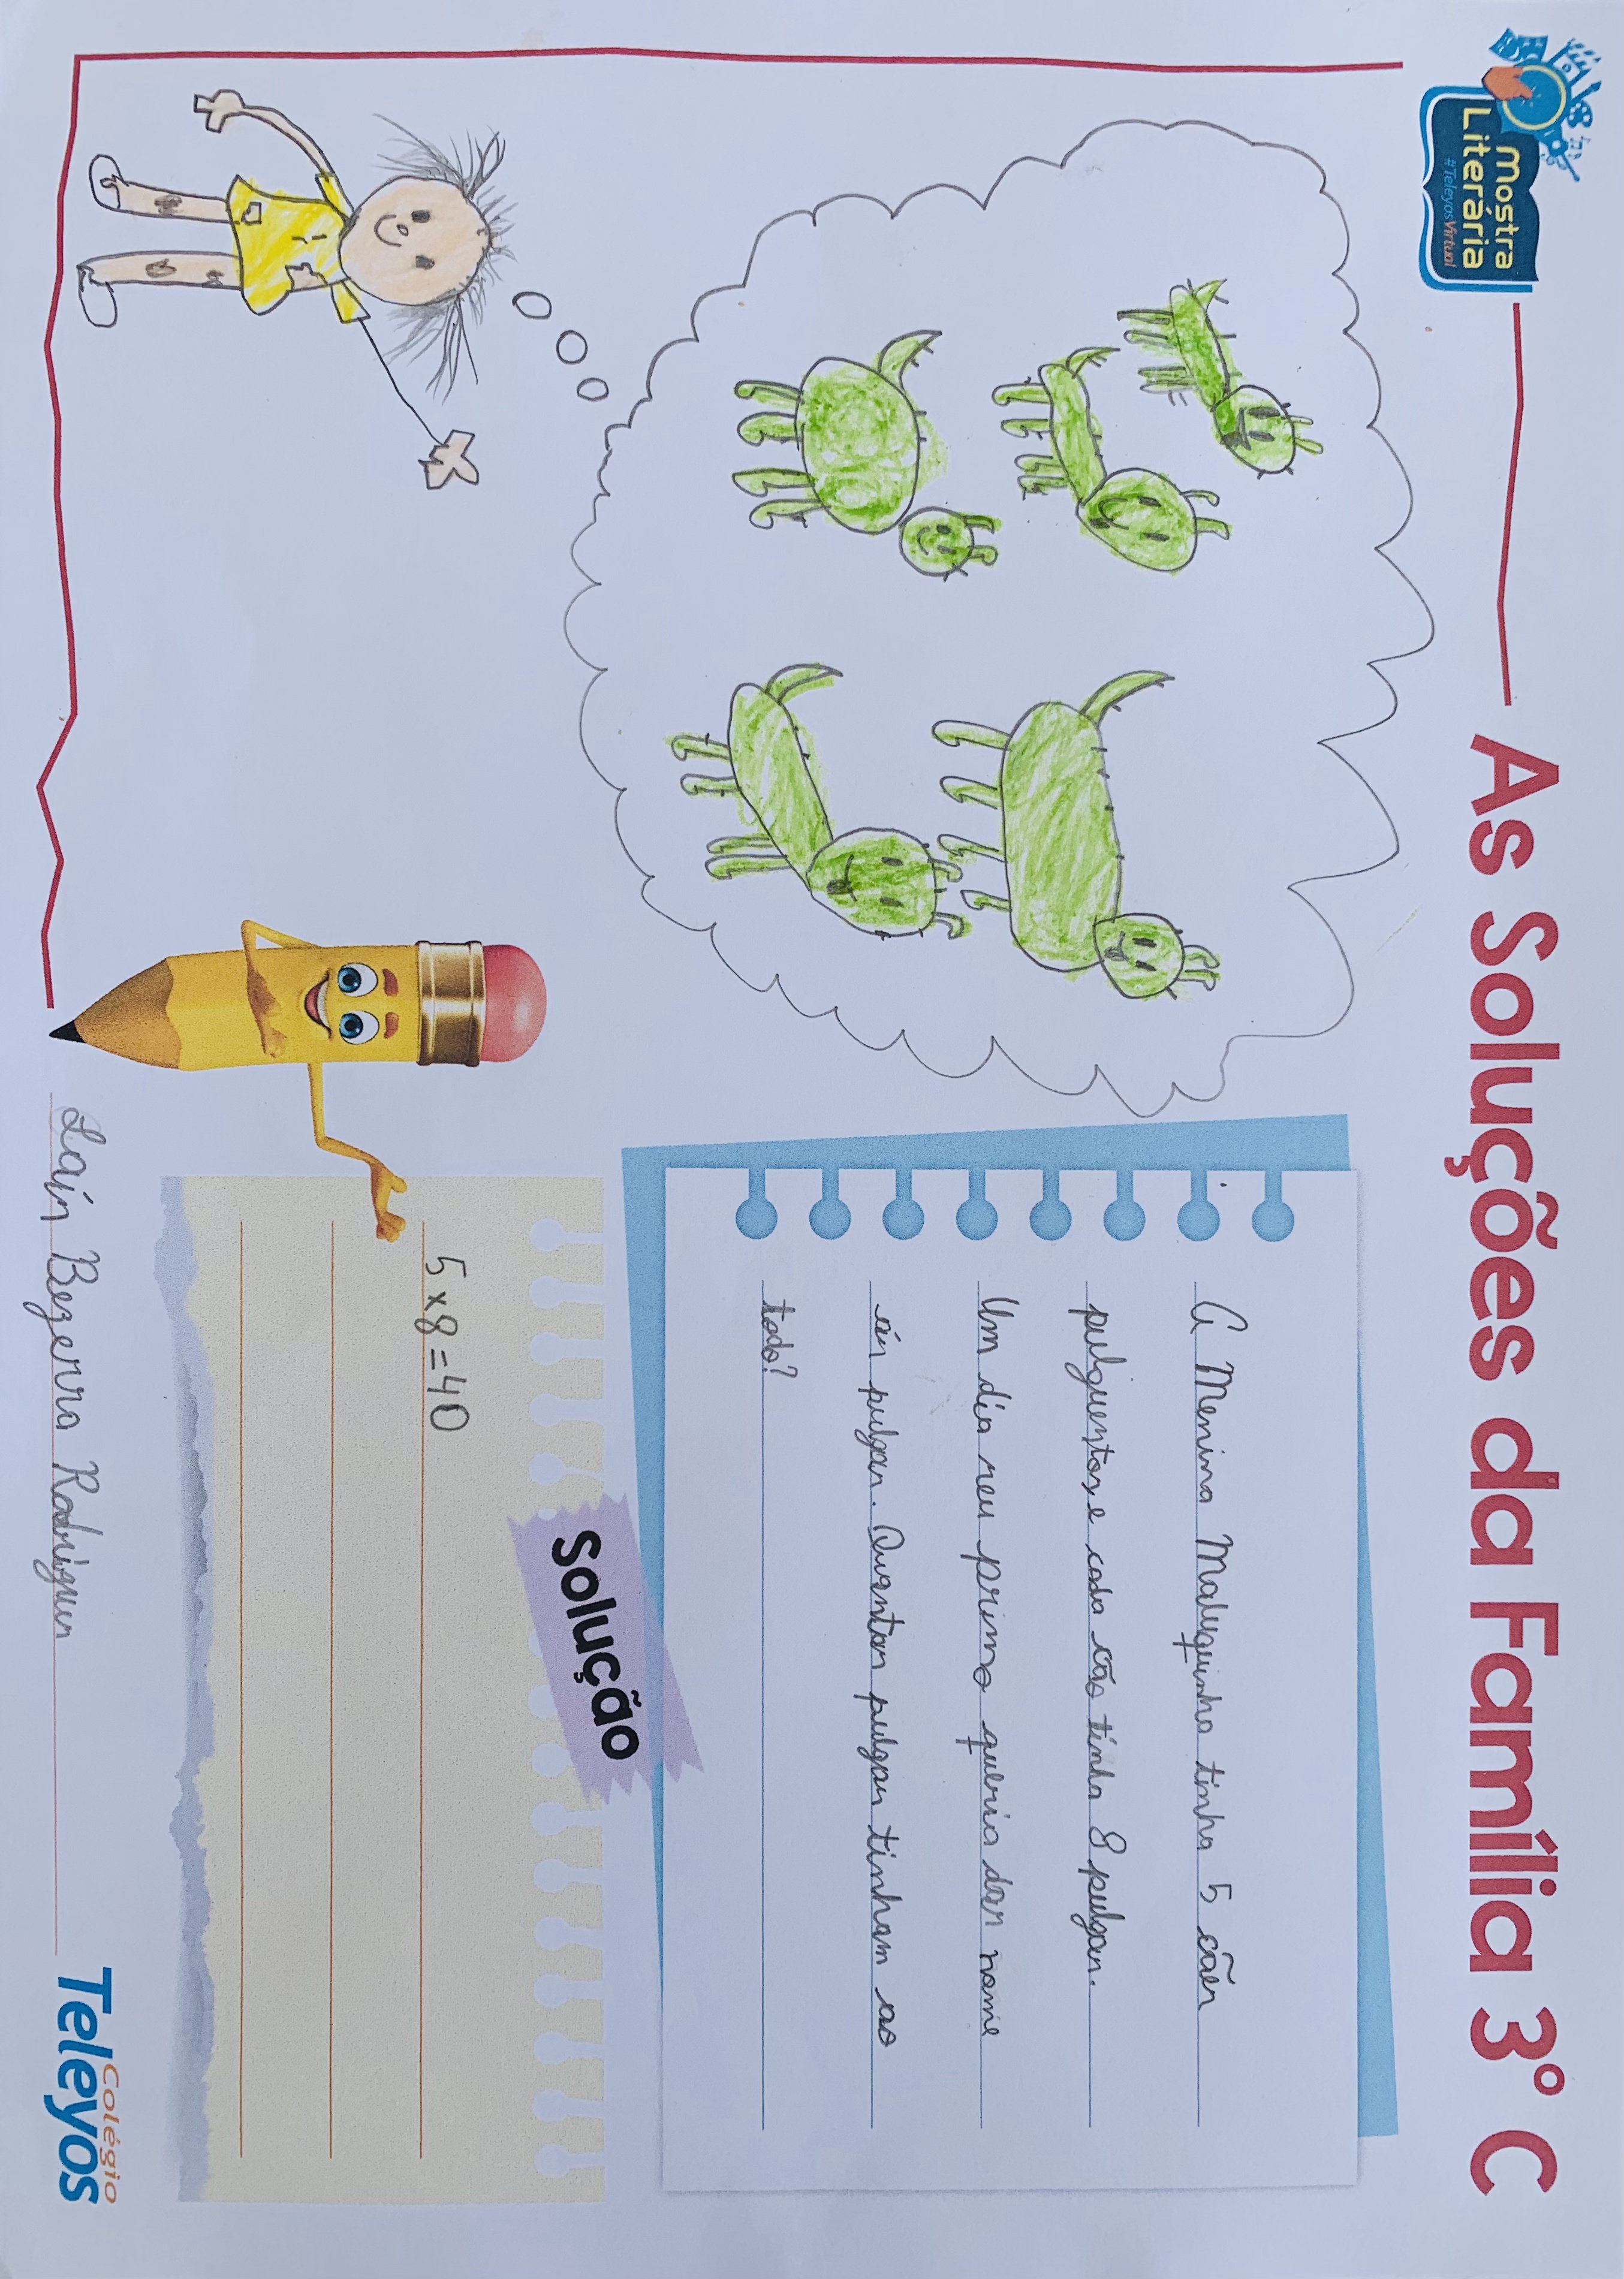 Mostra
Literária
#TeleyosVirtual
As Soluções da Família 3º C
A Menina Maluquinha tinha 5 cães
pulguentos e cada cão tinha 8 pulgas.
Um dia seu primo queria dar nome
às pulgas. Quantas pulgas tinham ao
todo?
Solução
5 x 8 = 40
Laís Bezerra Rodrigues
Colégio
Teleyos